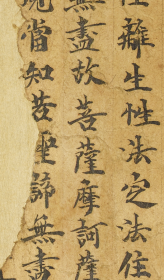 性離生性法定法住
無盡故菩薩摩訶薩
當知苦聖諦無盡